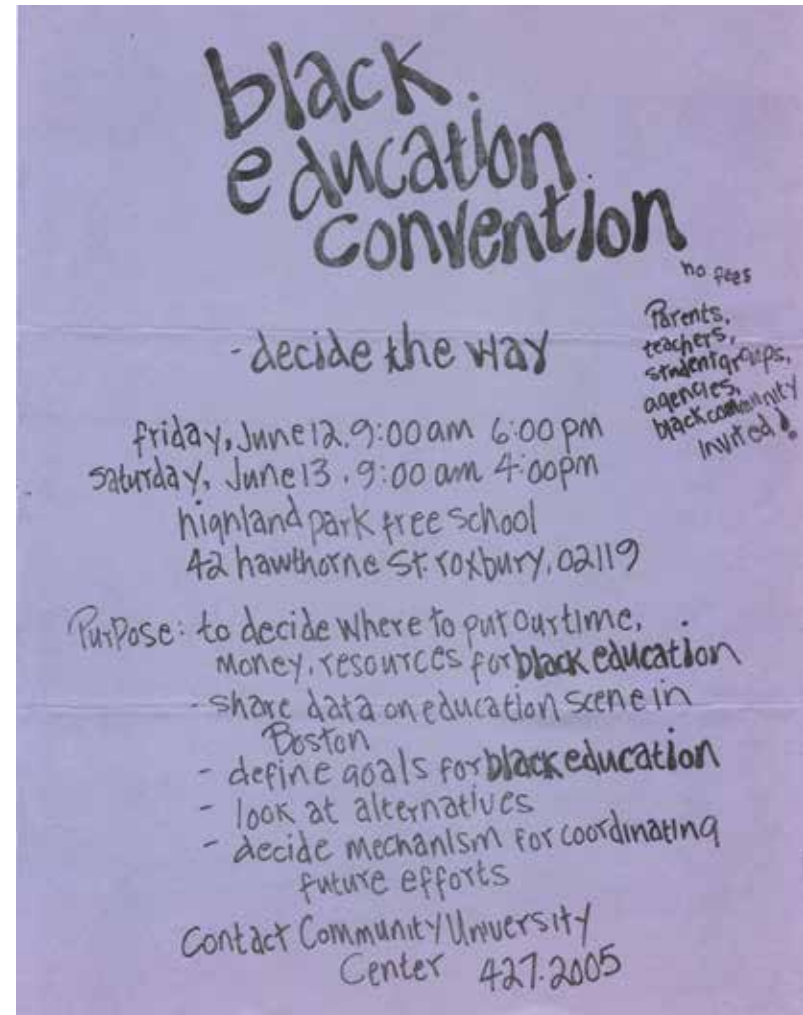 black
education
convention
no fees
Parents,
teachers,
student groups,
agencies,
black community
invited!
- decide the way
friday, June 12. 9:00 am 6:00 pm
saturday, June 13. 9:00 am 4:00pm
highland park free school
42 hawthorne St. roxbury, 02119
Purpose: to decide where to put our time,
money, resources for black education
- share data on education scene in
Boston
- define goals for black education
- look at alternatives
- decide mechanism for coordinating
future efforts
Contact Community University
Center 427.2005